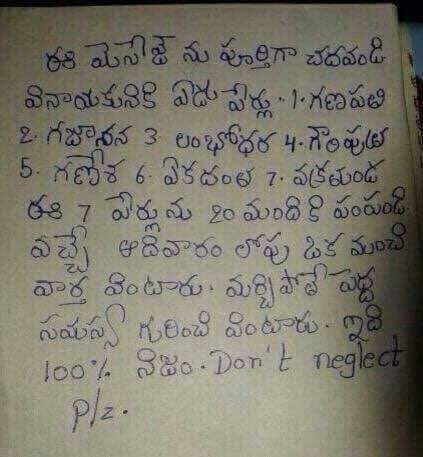 ఈ మెసేజ్ ను పూర్తిగా చదవండి
వినాయకునికి ఏడు పేర్లు. 1. గణపతి
2. గజానన 3 లంభోధర 4. గౌరిపుత్ర
5. గణేశ 6. ఏకదంత 7. వక్రతుండ
ఈ 7 పేర్లును 20 మందికి పంపండి
వచ్చే ఆదివారం లోపు ఒక మంచి
వార్త వింటారు. మర్చిపోతే పెద్ద
సమస్య గురించి వింటారు. ఇది
100% నిజం. Don't neglect
plz.